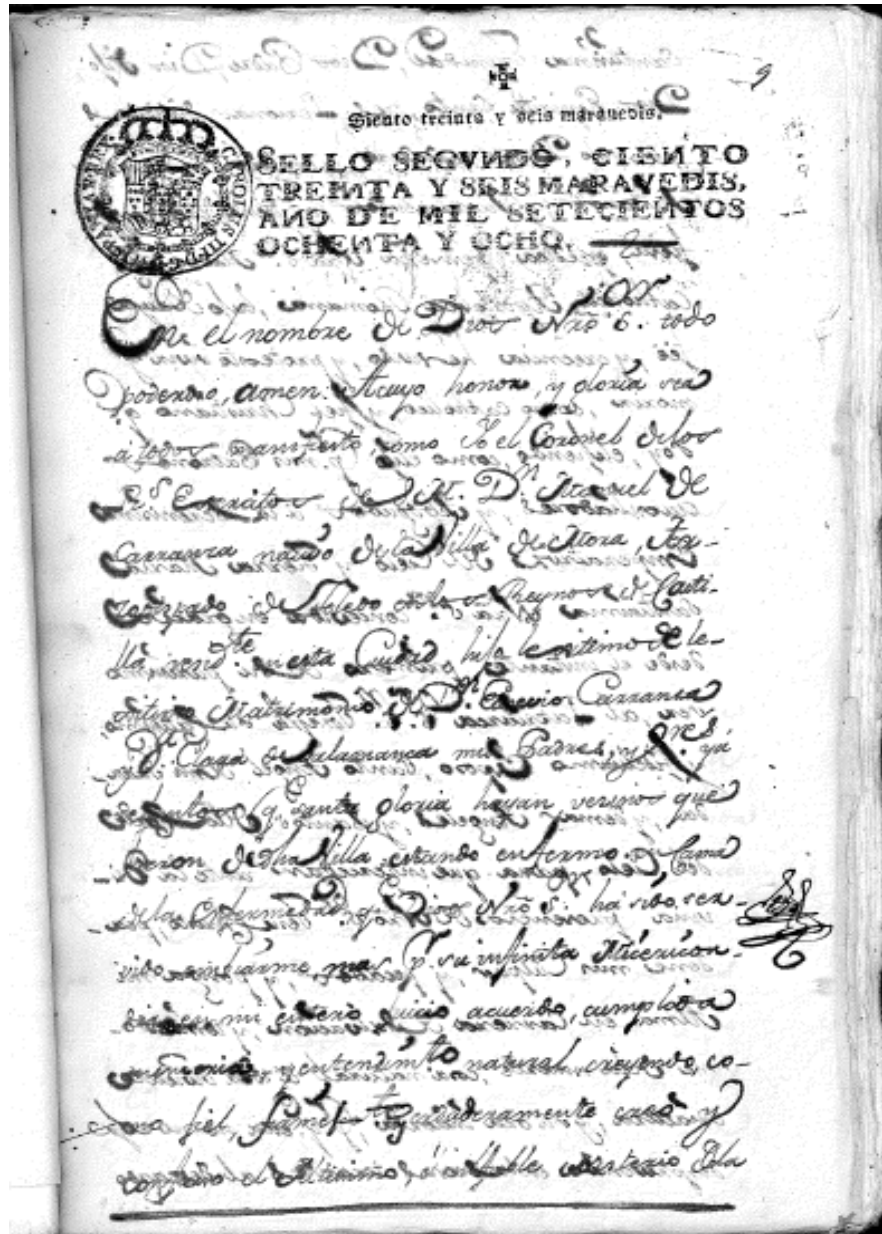 9
Siento treinta y seis marauedis.
SELLO SEGVNDO, CIENTO
TREINTA Y SEIS MARAVEDIS,
AÑO DE MIL SETECIENTOS
OCHENTA Y OCHO.
CAROLUS III D G HISPANIAR REX
En el nombre de Dios Nrõ S.or todo
poderoso, amen. Acuyo honor, y gloria sea
a todos manifiesto, como Yo el Coronel delos
R.s Exercitos de S. M. D.n Manuel de
Carranza natūdo dela Villa de Mora, Ar-
zobispado de Toledo delos Reynos de Casti-
lla resid.te en esta Ciudad hijo lexitimo de le-
gitimo Matrimonio de D.n Carranza
y D.a de Salamanca mis Padres, y S.res yá
defuntos q.e Santa gloria hayan vecinos que
fueron de dha Villa, estando enfermo en Cama
dela Enfermedad q.e Dios Nrõ S. há sido ser-
vido embiarme, mas p.r su infinita Micericor-
dia en mi entero juicio acuerdo, cumplida
memoria, y entendim.to natural, creyendo, co-
mo fiel, firme, y Verdaderamente creo y
confieso el Altisimo é inefable Misterio dela